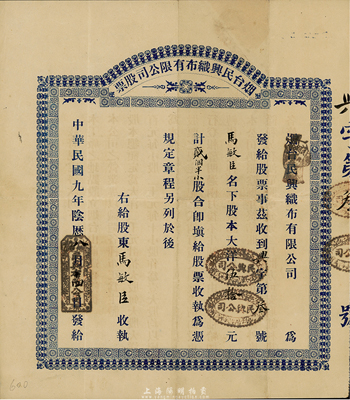 烟台民興織布有限公司股票
烟台民興織布有限公司 為
發給股票事茲收到
馬敏臣名下股本大洋伍拾元
計 股合即填給股票收執為憑
規定章程另列於後
右給股東馬敏臣 收執
中華民國九年陰歷八月 發給
興字第
號
上海陽明拍賣